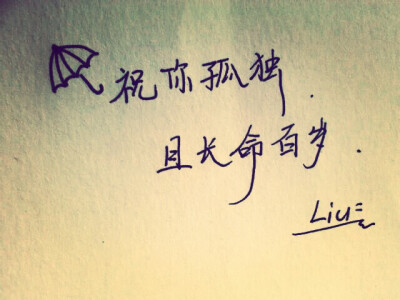 祝你孤独.
且长命百岁.
Liu=